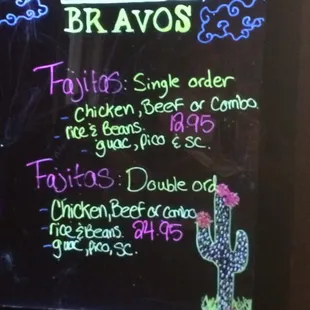 BRAVOS
Fajitas: Single order
- Chicken, Beef or Combo.
- rice & Beans. 12.95
- guac, Pico & SC.
Fajitas: Double ord
- Chicken, Beef or combo
- rice & Beans. 24.95
- guac, Pico, SC.